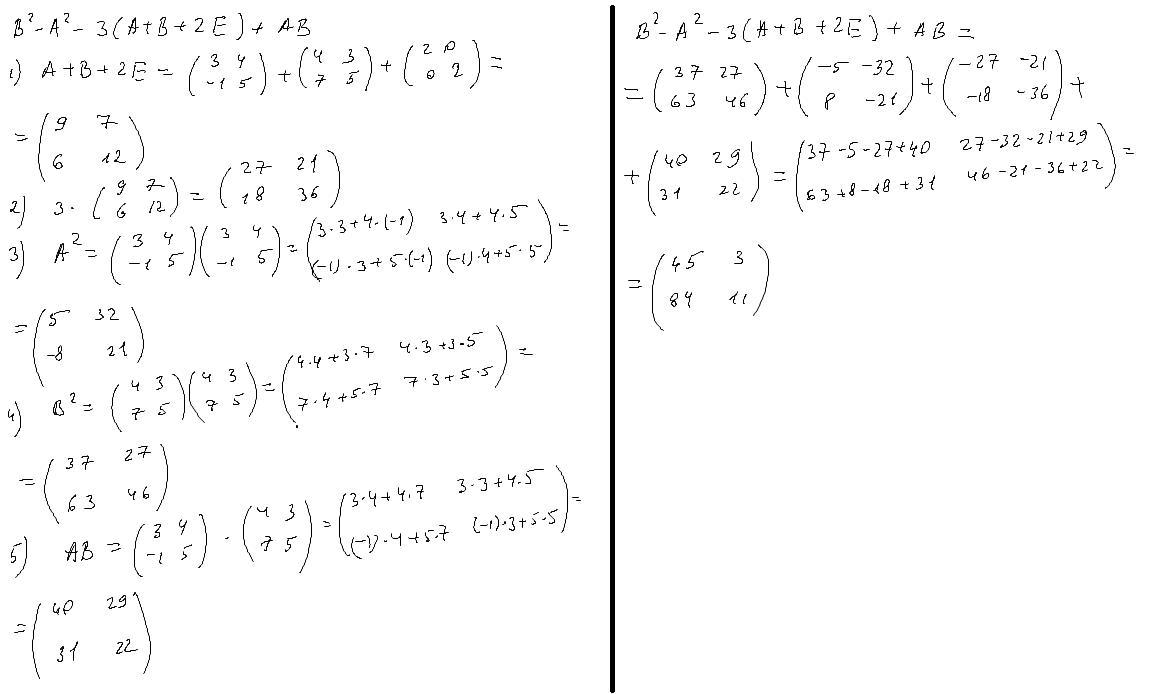 B² - A² - 3(A+B+2E) + AB
1) A+B+2E = (3 4; -1 5) + (4 3; 7 5) + (2 0; 0 2) =
= (9 7; 6 12)
2) 3·(9 7; 6 12) = (27 21; 18 36)
3) A² = (3 4; -1 5)(3 4; -1 5) = (3·3+4·(-1) 3·4+4·5; (-1)·3+5·(-1) (-1)·4+5·5) =
= (5 32; -8 21)
4) B² = (4 3; 7 5)(4 3; 7 5) = (4·4+3·7 4·3+3·5; 7·4+5·7 7·3+5·5) =
= (37 27; 63 46)
5) AB = (3 4; -1 5) · (4 3; 7 5) = (3·4+4·7 3·3+4·5; (-1)·4+5·7 (-1)·3+5·5) =
= (40 29; 31 22)
B² - A² - 3(A+B+2E) + AB =
= (37 27; 63 46) + (-5 -32; 8 -21) + (-27 -21; -18 -36) +
+ (40 29; 31 22) = (37-5-27+40 27-32-21+29; 63+8-18+31 46-21-36+22) =
= (45 3; 84 11)